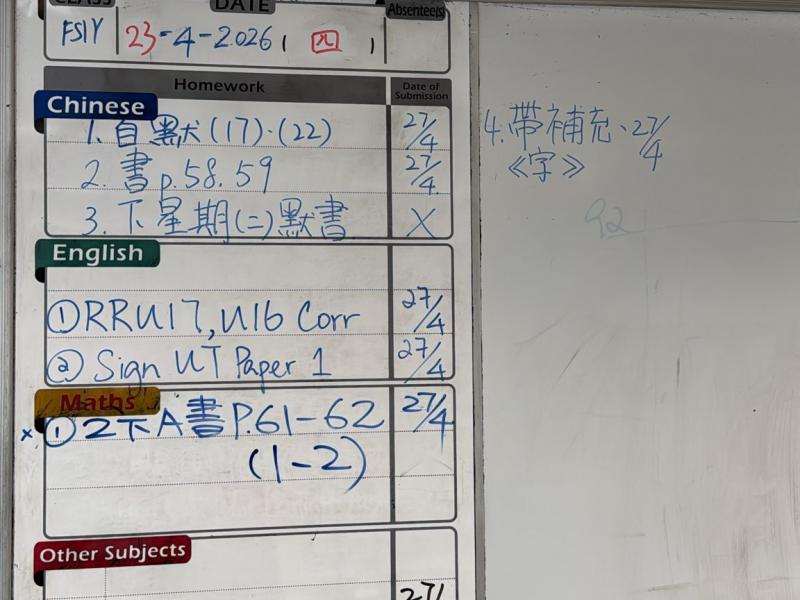 CLASS DATE Absentee(s)
FS1Y 23-4-2026 ( 四 )
Homework Date of Submission
Chinese
1. 自默(17)、(22) 27/4
2. 書p.58.59 27/4
3. 下星期(二)默書 X
4. 帶補充、27/4
《字》
92
English
① RRU17, U16 Corr 27/4
② Sign UT Paper 1 27/4
Maths
× ① 2下A書 P.61-62 27/4
(1-2)
Other Subjects